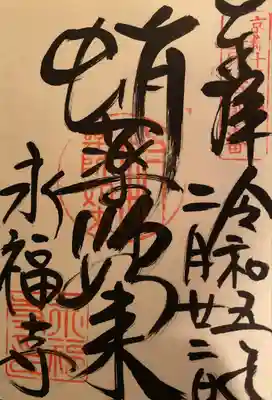 奉拝
令和五年
二月廿二日
蛸薬師如来
永福寺